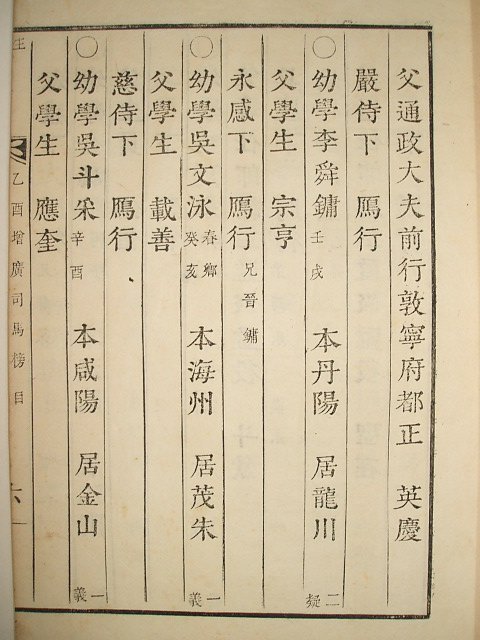 父通政大夫前行敦寧府都正 英慶
嚴侍下 鴈行
○幼學李舜鏞 壬戌 本丹陽 居龍川 二疑
父學生 宗亨
永感下 鴈行 兄晉鏞
○幼學吳文泳 春鄉 癸亥 本海州 居茂朱 一義
父學生 載善
慈侍下 鴈行
○幼學吳斗采 辛酉 本咸陽 居金山 一義
父學生 應奎
乙酉增廣司馬榜目 六